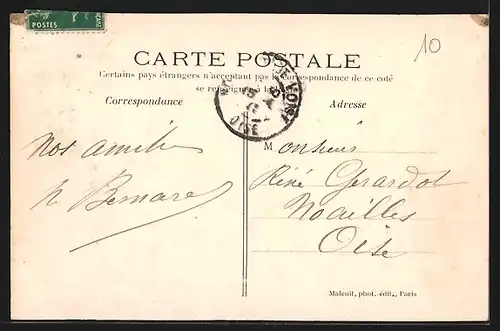 POSTES
10
CARTE POSTALE
Certains pays étrangers n'acceptant pas la correspondance de ce coté
se renseigner à la
Correspondance
Adresse
OISE
Nos amitiés
Monsieur
Réné Gerardot
Noailles
Oise
Maleuit, phot. édit., Paris